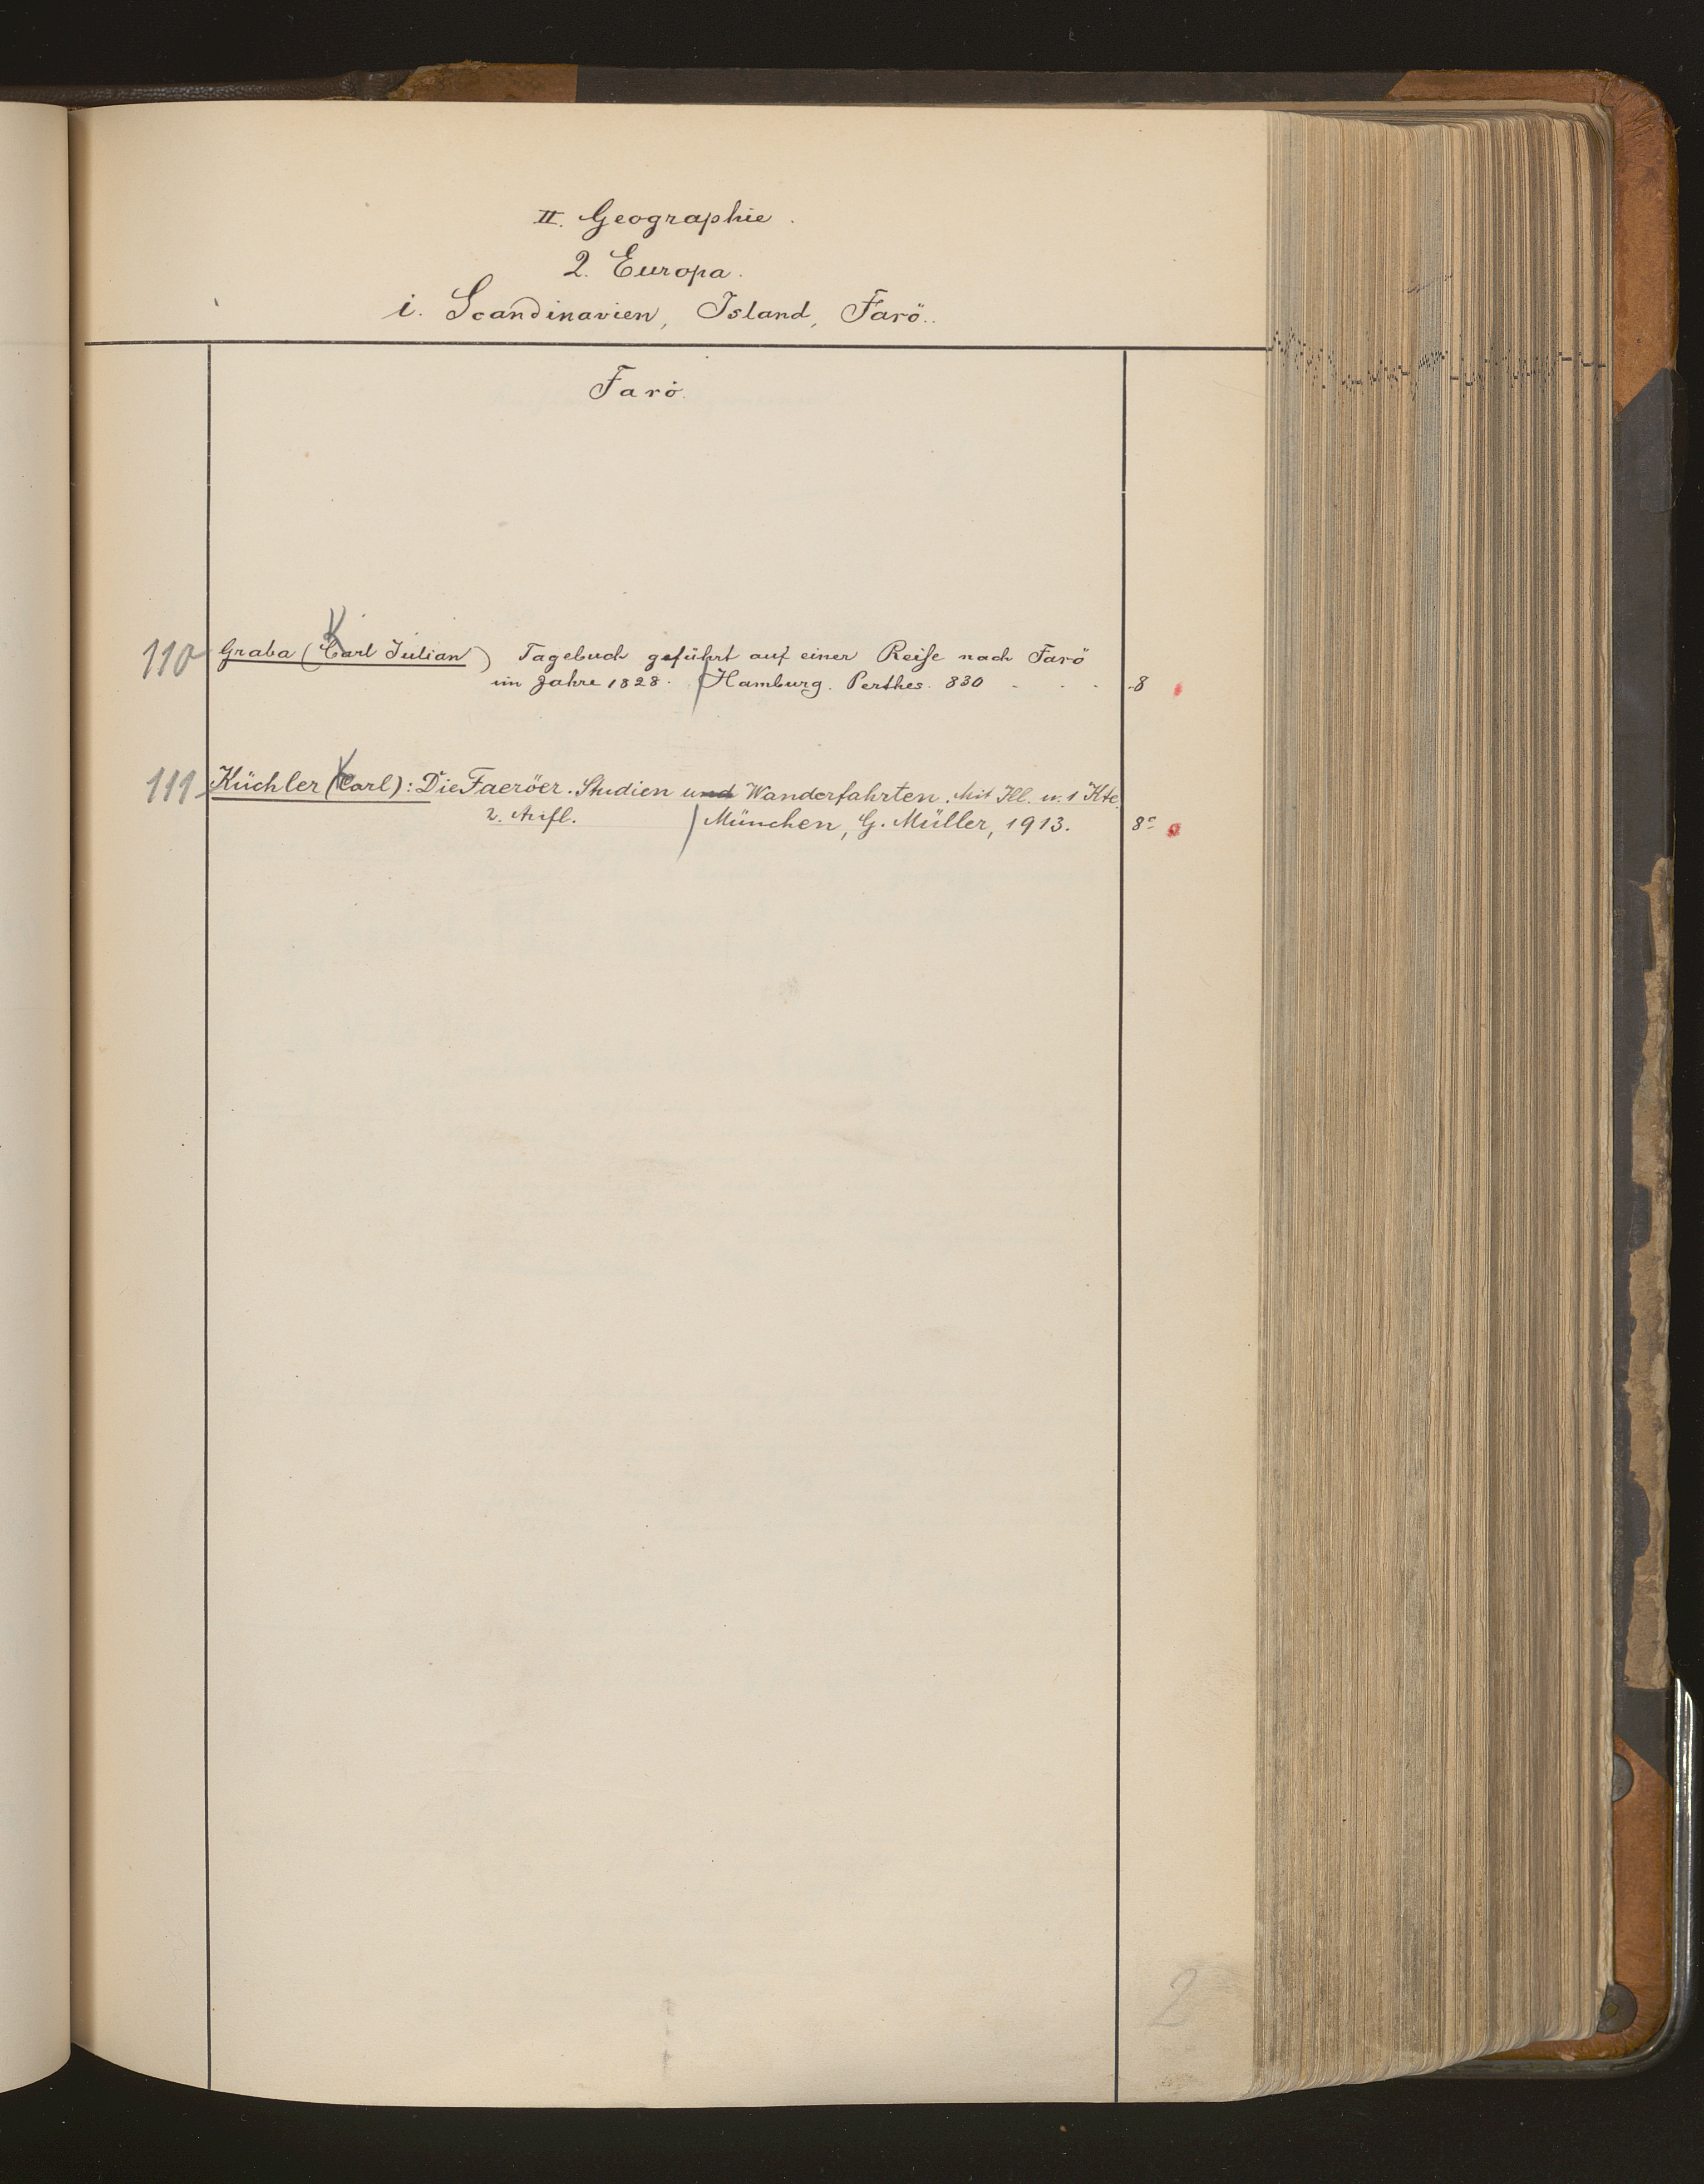 II. Geographie.
2. Europa.
i. Scandinavien, Island, Farö..
Farö.
110 Graba (Carl Julian) Tagebuch geführt auf einer Reise nach Farö
im Jahre 1828. Hamburg. Perthes. 830 . . . 8
111 Küchler (Carl): Die Faeröer. Studien und Wanderfahrten. Mit Ill. u. 1 Kte.
2. Aufl. München, G. Müller, 1913. 8°
2